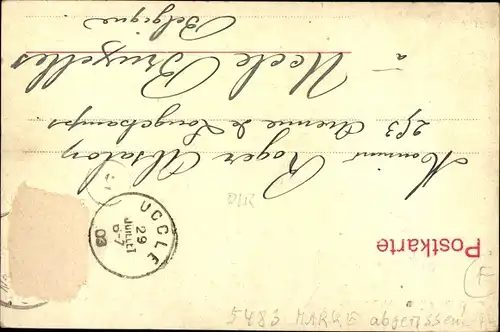 Postkarte
Monsieur Roger Absalon
253 Avenue de Longchamps
à Uccle Bruxelles
Belgique
UCCLE
29
JUILLET
6-7
03
5483 MARKE abgerissen!